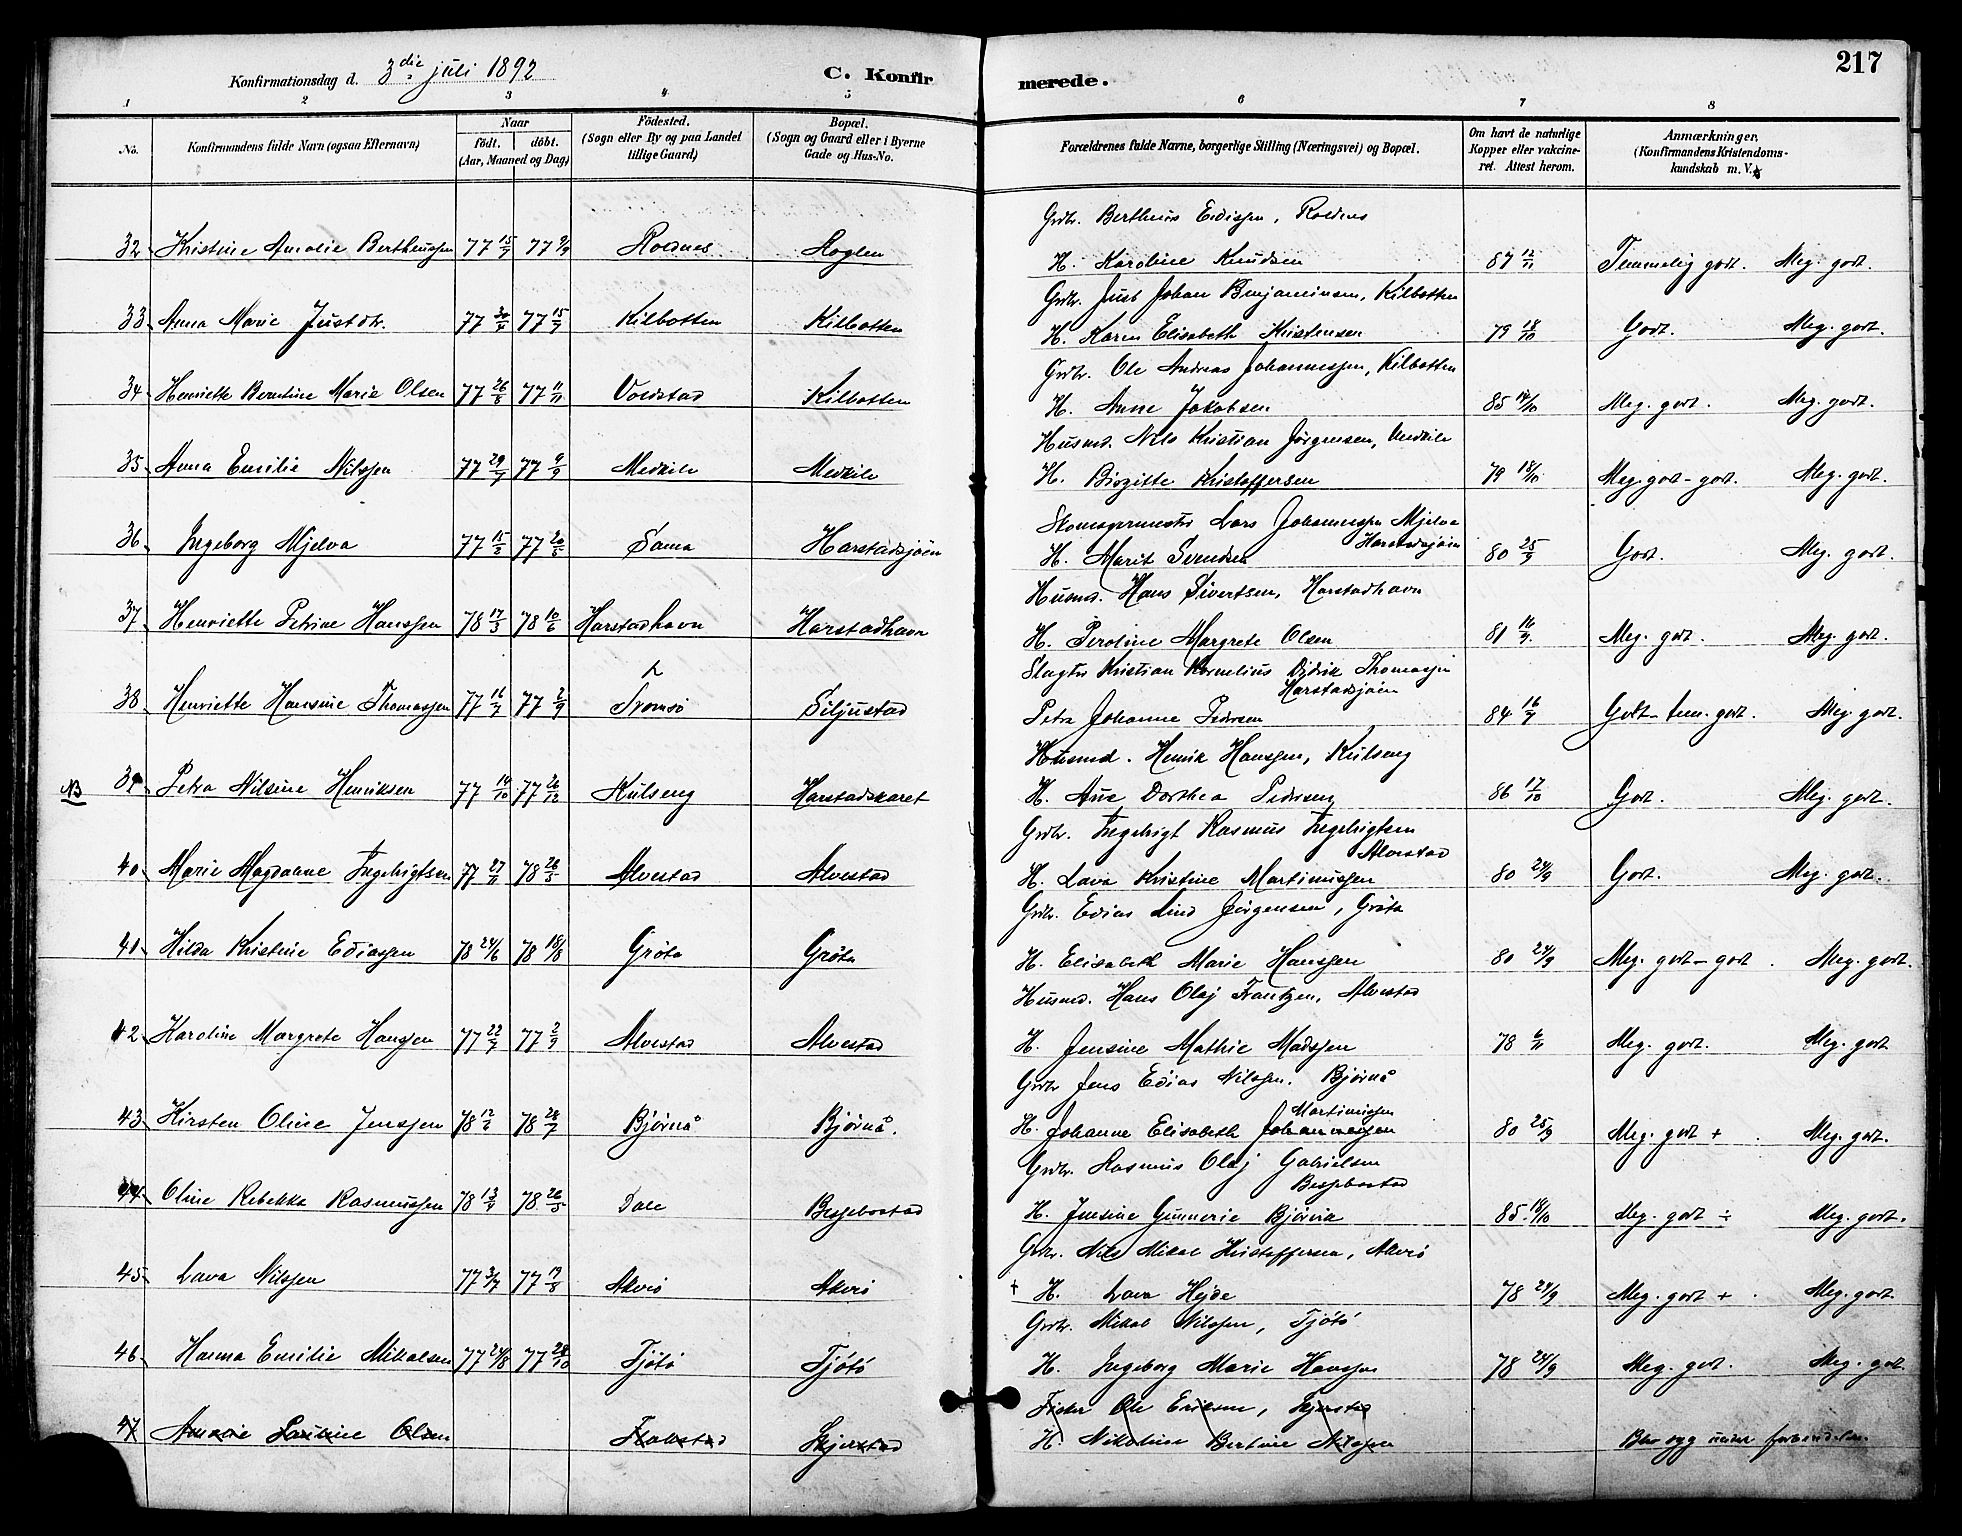 217
Konfirmationsdag d. 3die juli 1892
C. Konfirmerede.
1 2 3 4 5 6 7 8
No.
Konfirmandens fulde Navn (ogsaa Efternavn)
Naar
født. døbt.
(Aar, Maaned og Dag)
Fødested.
(Sogn eller By og paa Landet
tillige Gaard)
Bopæl.
(Sogn og Gaard eller i Byerne
Gade og Hus-No.
Forældrenes fulde Navne, borgerlige Stilling (Næringsvei) og Bopæl.
Om havt de naturlige
Kopper eller vakcine-
ret. Attest herom.
Anmærkninger.
(Konfirmandens Kristendoms-
kundskab m. V.
Grdbr. Bertheus Edissen, Roldnes
32 Kristine Amalie Bertheussen 77 15/7 77 9/9 Roldnes Aoglen H. Karoline Knudsen 87 12/11 Temmelig godt. Meg. godt.
Grdbr. Just Johan Benjaminsen, Kilbotten
33 Anna Marie Justdtr. 77 77 15/7 Kilbotten Kilbotten H. Karen Elisabeth Kristensen 79 18/10 Godt. Meg. godt.
Grdbr. Ole Andreas Johannessen, Kilbotten
34 Henriette Berntine Marie Olsen 77 26/8 77 11/11 Voldstad Kilbotten H. Anne Jakobsen 85 14/10 Meg. godt. Meg. godt.
Husmd. Nils Kristian Jørgensen, Medkile
35 Anna Emilie Nilssen 77 29/7 77 9/9 Medkile Medkile H. Birgitte Kristoffersen 79 18/10 Meg. godt - godt. Meg. godt.
Skomagermester Lars Johannessen Mjelva
Harstadsjøen
36 Ingeborg Mjelva 77 77 20/5 Sama Harstadsjøen H. Marit Svendsen 80 25/9 Godt. Meg. godt.
Husmd. Hans Sivertsen, Harstadhavn
37 Henriette Petrine Hanssen 78 17/3 78 10/6 Harstadhavn Harstadhavn H. Peroline Margrete Olsen 81 Meg. godt. Meg. godt.
Slagter Kristian Kornelius Didrik Thomassen
Harstadsjøen
38 Henriette Hansine Thomassen 77 16/7 77 2/9 Tromsø Siljustad Petra Johanne Pedersen 84 16/7 Godt - tem. godt. Meg. godt.
Husmd. Henrik Hanssen, Kulseng
NB 39 Petra Nilsine Henriksen 77 14/10 77 26/12 Kulseng Harstadskaret H. Ane Dorthea Pedersen 86 17/10 Godt. Meg. godt.
Grdbr. Ingebrigt Rasmus Ingebrigtsen
Alvestad
40 Marie Magdalene Ingebrigtsen 77 27/11 78 26/5 Alvestad Alvestad H. Lava Kristine Martinussen 80 24/9 Godt. Meg. godt.
Grdbr. Edias Lind Jørgensen, Grøta
41 Hilda Kristine Ediassen 78 24/6 78 18/8 Grøta Grøta H. Elisabeth Marie Hanssen 80 24/9 Meg. godt - godt. Meg. godt.
Husmd. Hans Olaj Frantzen, Alvestad
42 Karoline Margrete Hanssen 77 22/7 77 2/9 Alvestad Alvestad H. Jensine Mathie Madssen 78 6/11 Meg. godt. Meg. godt
Grdbr Jens Edias Nilssen. Bjørnå
Martinussen
43 Kirsten Oline Jenssen 78 12/6 78 28/7 Bjørnå Bjørnå. H. Johanne Elisabeth Johannessen 80 25/9 Meg. godt + Meg. godt.
Grdbr. Rasmus Olaj Gabrielsen
Bessebostad
44 Oline Rebekka Rasmussen 78 13/4 78 26/5 Dale Bessebostad H. Jensine Gunnerie Bjørvik 85 18/10 Meg. godt ÷ Meg. godt.
Grdbr. Nils Mikal Kristoffersen, Akerø
45 Lava Nilssen 77 3/7 77 19/8 Akerø Akerø † H. Lava Hejde 78 24/9 Meg. godt + Meg. godt
Grdbr. Mikal Nilssen, Tjøtø
46 Hanna Emilie Mikalsen 77 24/8 77 28/10 Tjøtø Tjøtø H. Ingeborg Marie Hanssen 78 24/9 Meg. godt. Meg. godt.
Fisker Ole Eriksen, Skjerstad
47 Amalie Pauline Olsen Skjerstad H. Nikoline Bertine Nilssen Blev syg under forberedelsen.